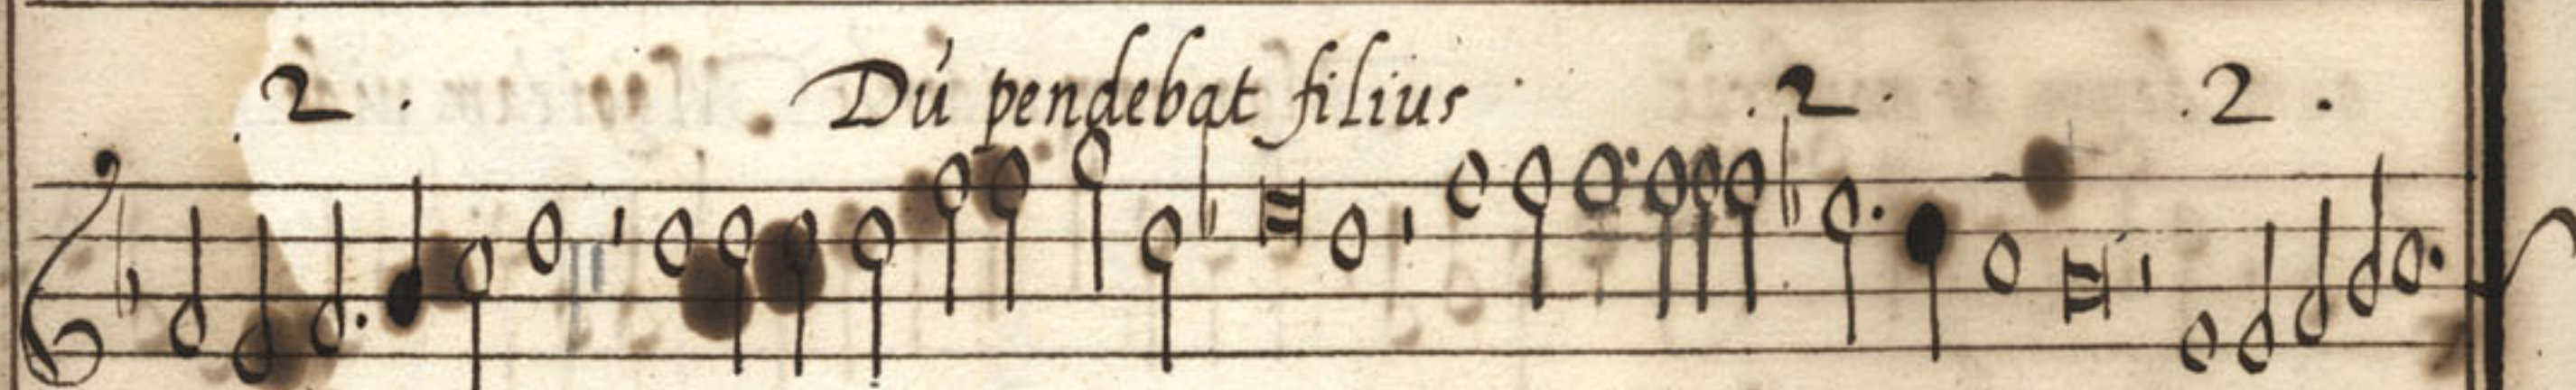 2. Dū pendebat filius .2. .2.